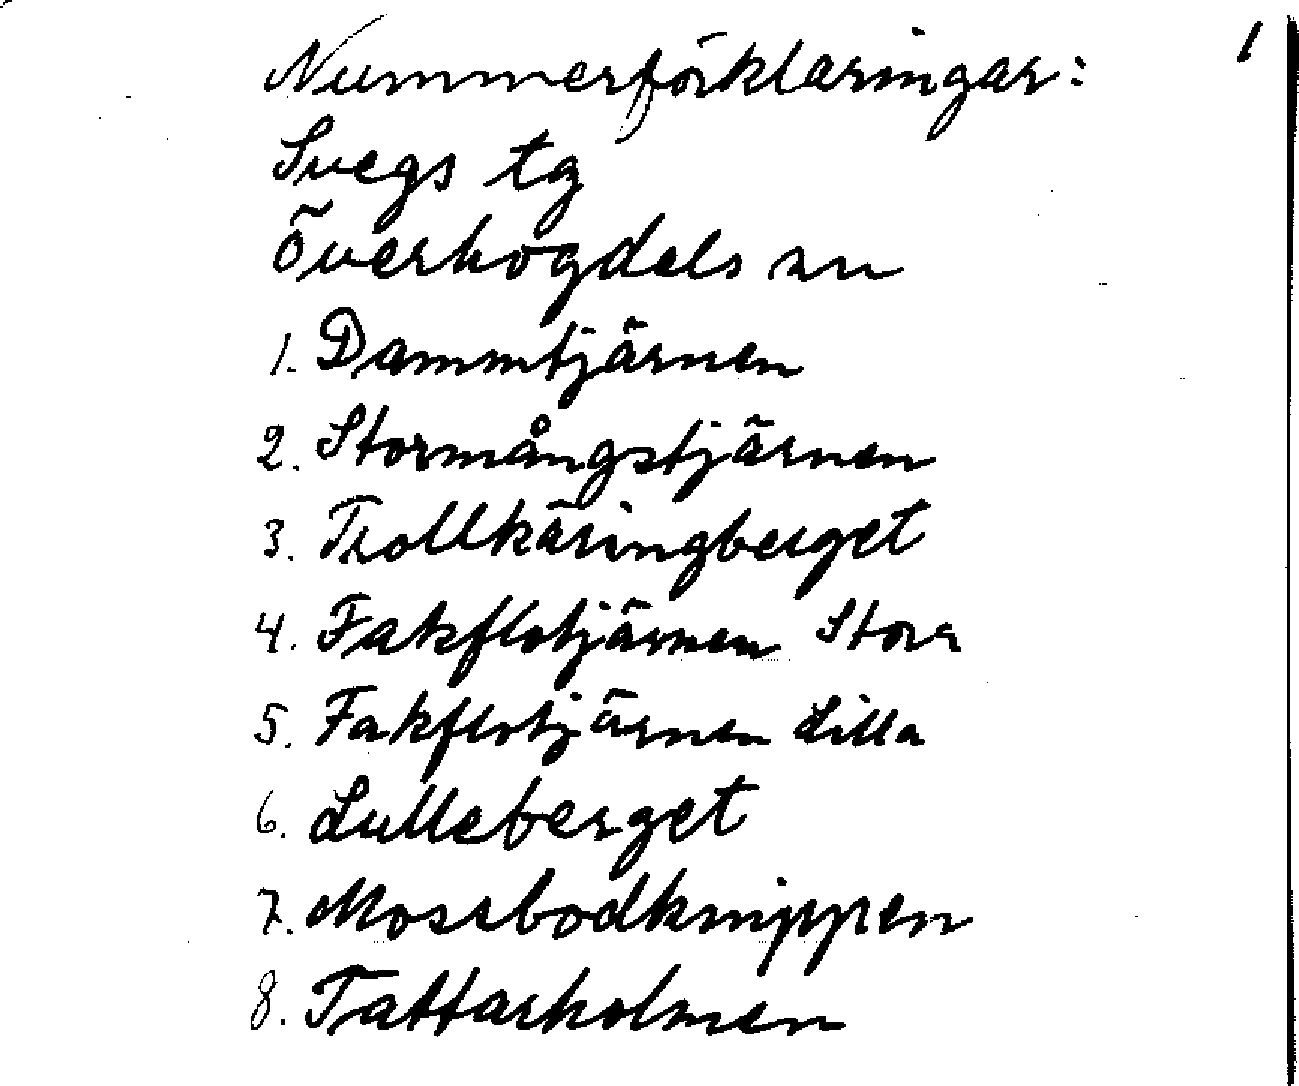 1
Nummerförklaringar:
Svegs tg
Överhogdals sn
1. Dammtjärnen
2. Stormångstjärnen
3. Trollkäringberget
4. Fakflotjärnen Stora
5. Fakflotjärnen Lilla
6. Lulleberget
7. Mossbodknippen
8. Tattarholmen